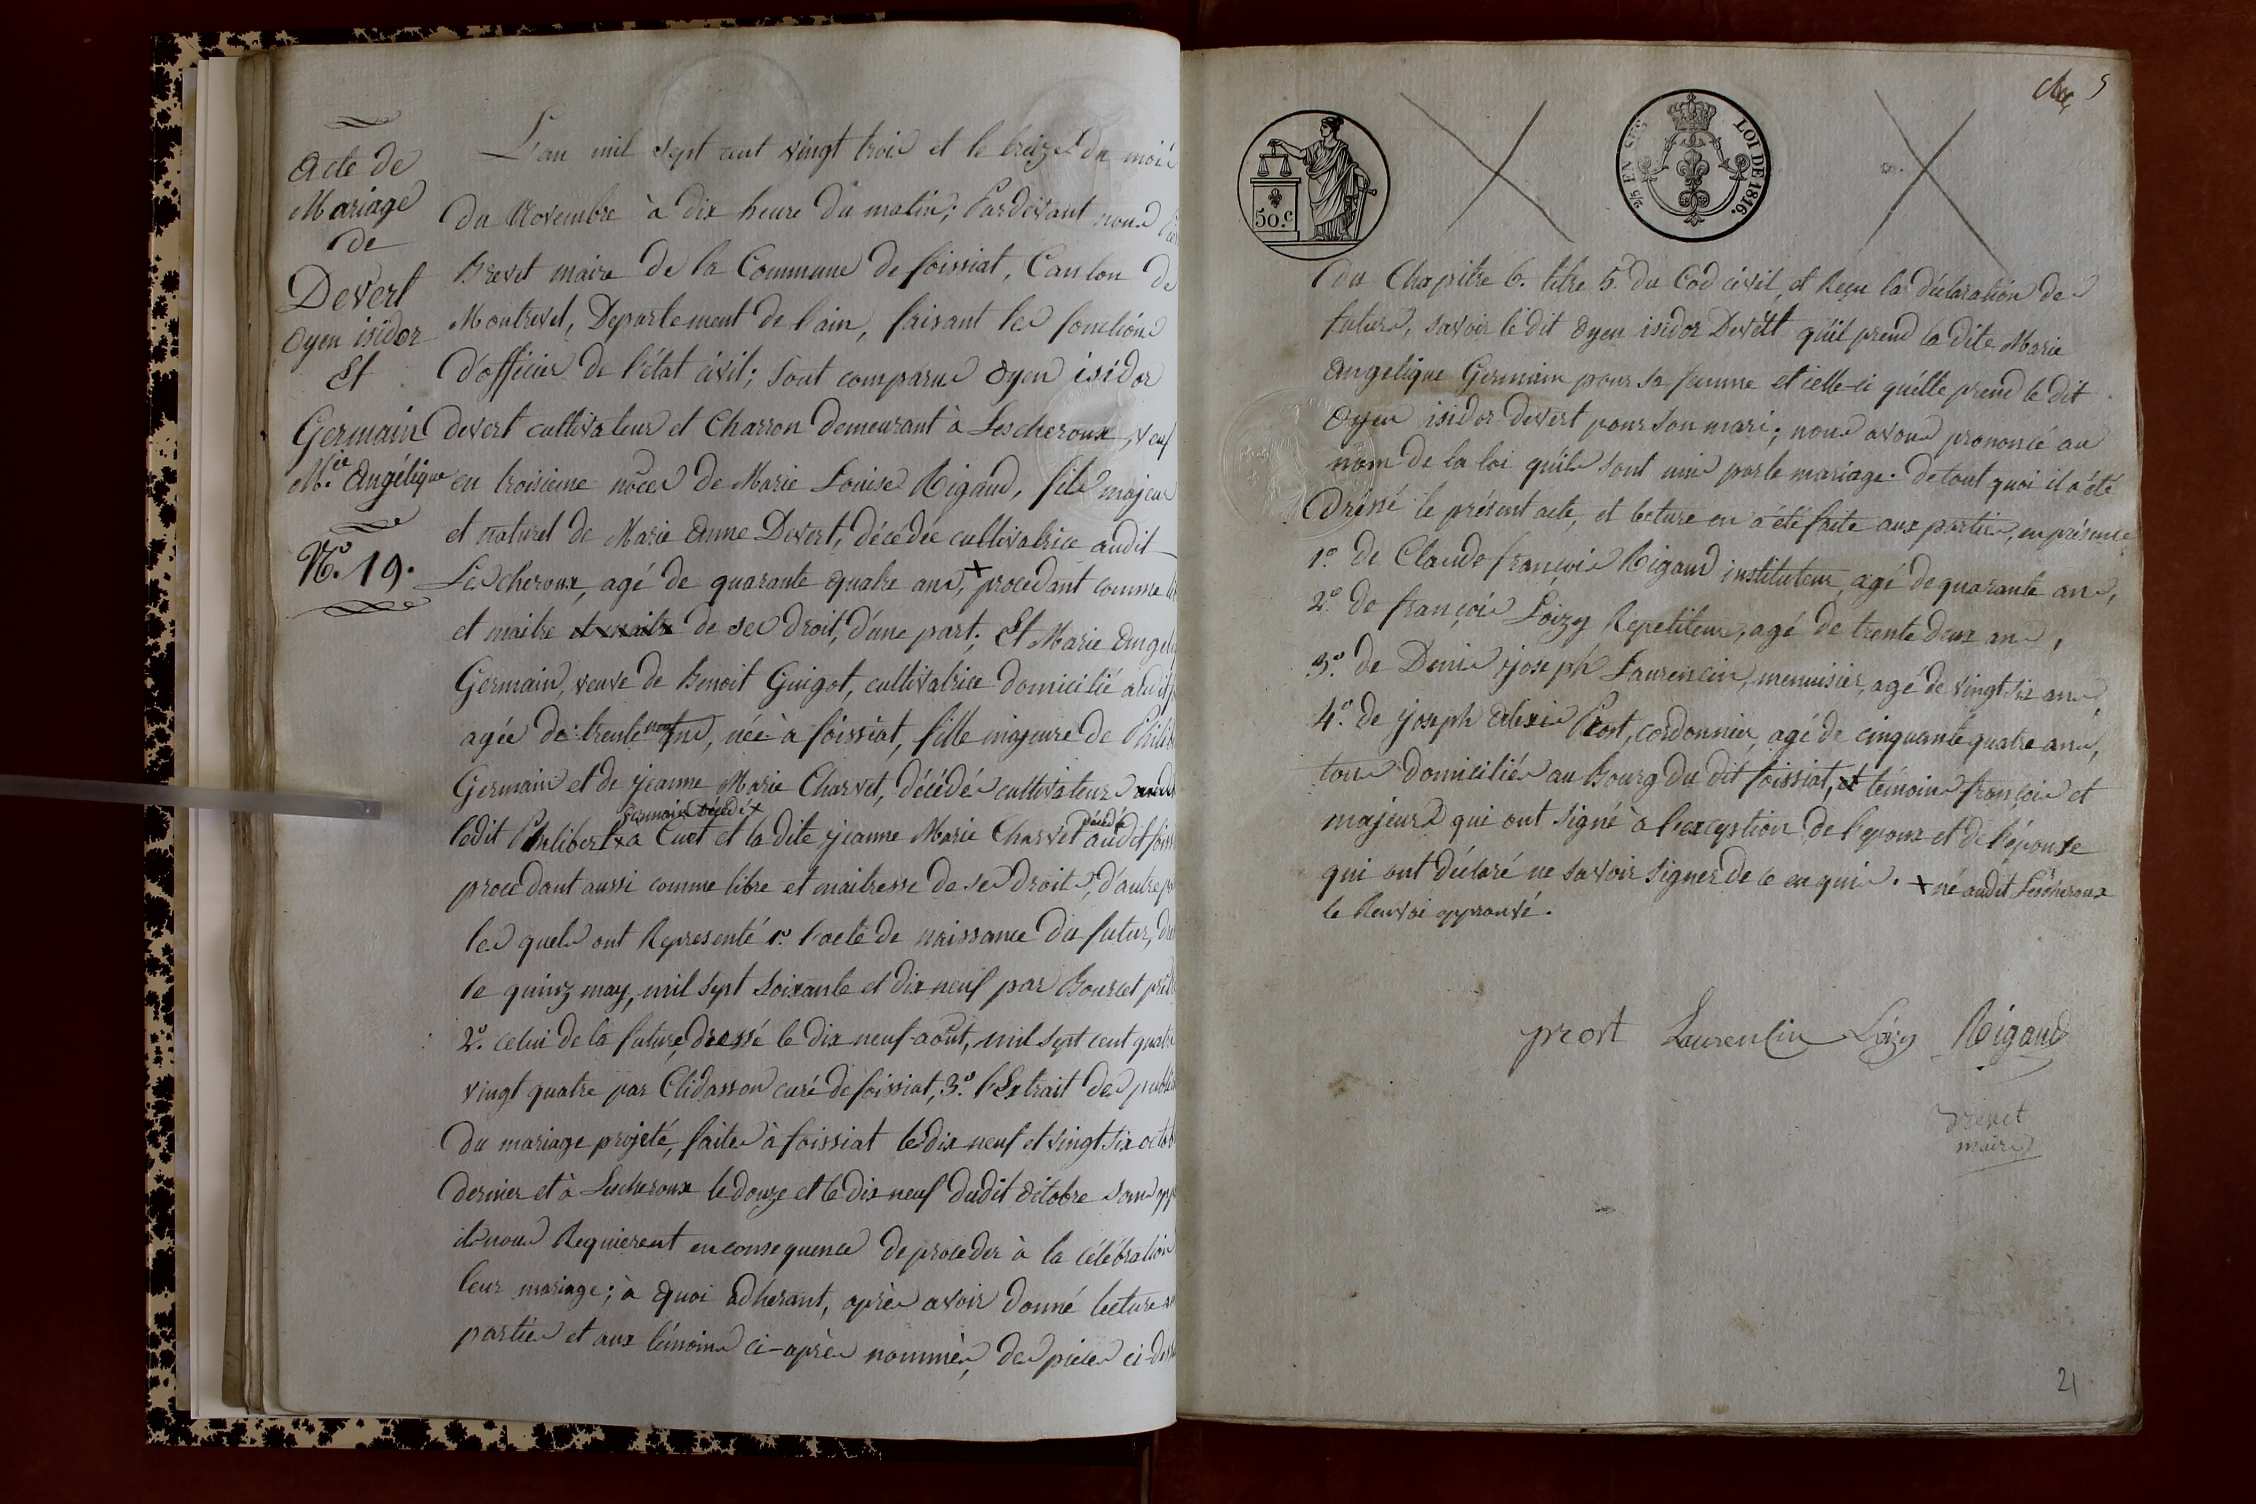 Acte de
Mariage
de
Devert
Oyen isidor
Et
Germain
M.ie Angélique
N.o 19.
L'an mil sept cent vingt trois et le treize du mois
du Novembre à dix heure du matin; Pardevant nous
Brevet maire de la Commune de foissiat, Canton de
Montrevel, Departement de l'ain, faisant les fonctions
d'officier de l'état civil; sont comparus Oyen isidor
devert cultivateur et Charron demeurant à Lescheroux, veuf
en troisieme noces de Marie Louise Rigaud, fils majeur
et naturel de Marie Anne Devert, décédée cultivatrice audit
Lescheroux, agé de quarante quatre ans, + procédant comme
et maitre et maitre de ses droit, d'une part; Et Marie
Germain, veuve de Benoit Guigot, cultivatrice domicilié
agée de trente neuf ans, née à foissiat, fille majeure de
Germain et de jeanne Marie Charvet, décédés cultivateurs
Germain décédé +
décédée
ledit Philibert + a Cuet et la dite jeanne Marie Charvet audit
procédant aussi comme libre et maitresse de ses droits, d'autre
les quels ont Representé 1.o l'acte de naissance du futur,
le quinz may, mil sept soixante et dix neuf par Bourcet
2.o celui de la future, dressé le dix neuf août, mil sept cent quatre
vingt quatre par Clidasson curé de foissiat, 3.o l'Extrait des
du mariage projeté, faites à foissiat le dix neuf et vingt six
dernier et à Lescheroux le douze et le dix neuf dudit Octobre sans
et nous Requierent en consequence de proceder à la célébration
leur mariage; à quoi adhérant, après avoir donné lecture
parties et aux témoins ci-après nommés, des pièces
5
50.c
2/5 EN SUS
LOI DE 1816.
du Chapitre 6. titre 5. du Cod civil, et Reçu la déclaration des
futurs, savoir le dit Oyen isidor Devert qu'il prend la dite Marie
Angelique Germain pour sa femme et celle-ci qu'elle prend le dit
Oyen isidor devert pour son mari; nous avons prononcé au
nom de la loi qu'ils sont unis par le mariage. de tout quoi il a été
Dressé le présent acte, et lecture en a été faite aux parties, en présence
1.o de Claude françois Rigaud instituteur, agé de quarante ans,
2.o de françois Loizy Repetiteur, agé de trente deux ans,
3.o de Denis joseph Laurencin, menuisier, agé de vingt six ans,
4.o de joseph Alexis Prost, cordonnier, agé de cinquante quatre ans,
tous domiciliés au Bourg du dit foissiat, et témoins françois et
majeurs qui ont signé à l'exception de l'epoux et de l'épouse
qui ont déclaré ne savoir signer de ce enquis. + né audit Lescheroux
le Renvoi approuvé.
prost Laurencin Loizy Rigaud
Brevet
maire
21